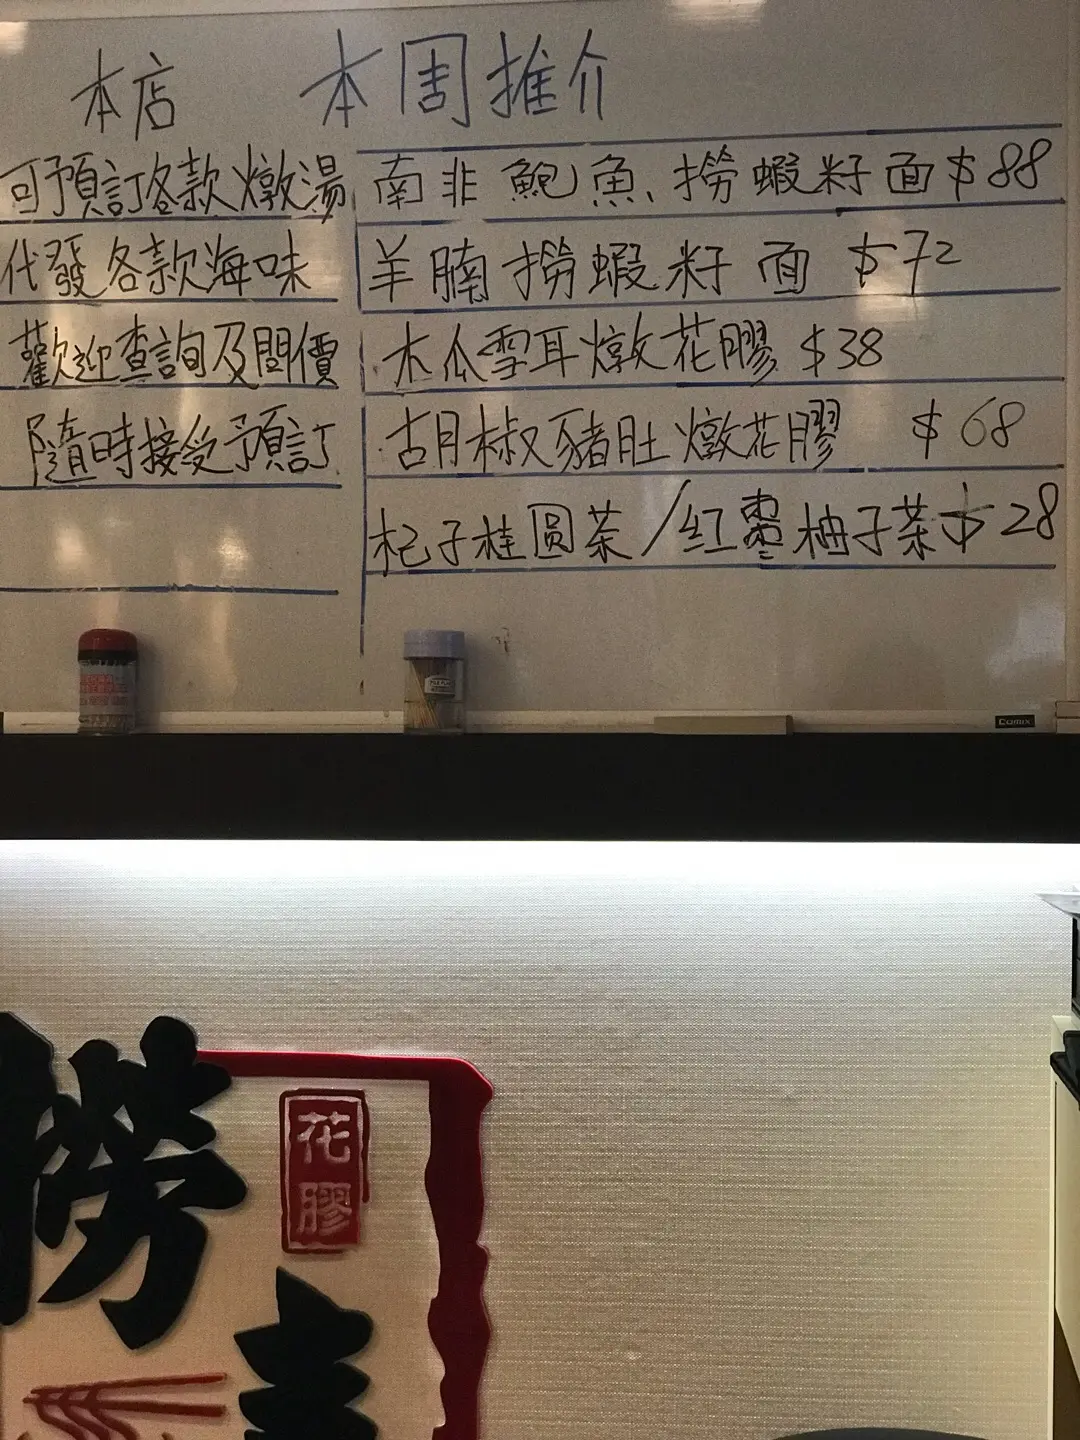 本店
可預訂各款燉湯
代發各款海味
歡迎查詢及問價
隨時接受預訂
本周推介
南非鮑魚、撈蝦籽面$88
羊腩撈蝦籽面 $72
木瓜雪耳燉花膠 $38
胡椒豬肚燉花膠 $68
杞子桂圆茶/红棗柚子茶$28
COMIX
撈
花膠